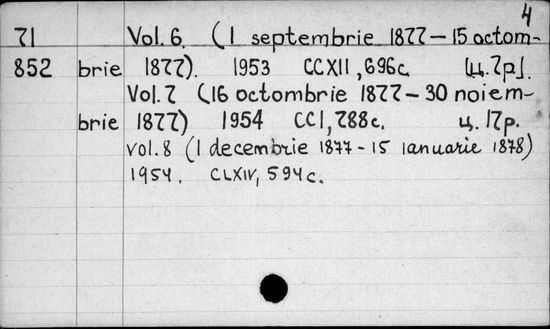 4
71 Vol. 6. (1 septembrie 1877 – 15 octom-
852 brie 1877). 1953 CCXII, 696c. [ц. 7р].
Vol. 7 (16 octombrie 1877 – 30 noiem-
brie 1877) 1954 CCI, 788c. ц. 17р.
vol. 8 (1 decembrie 1877 - 15 ianuarie 1878)
1954. CLXIV, 594c.